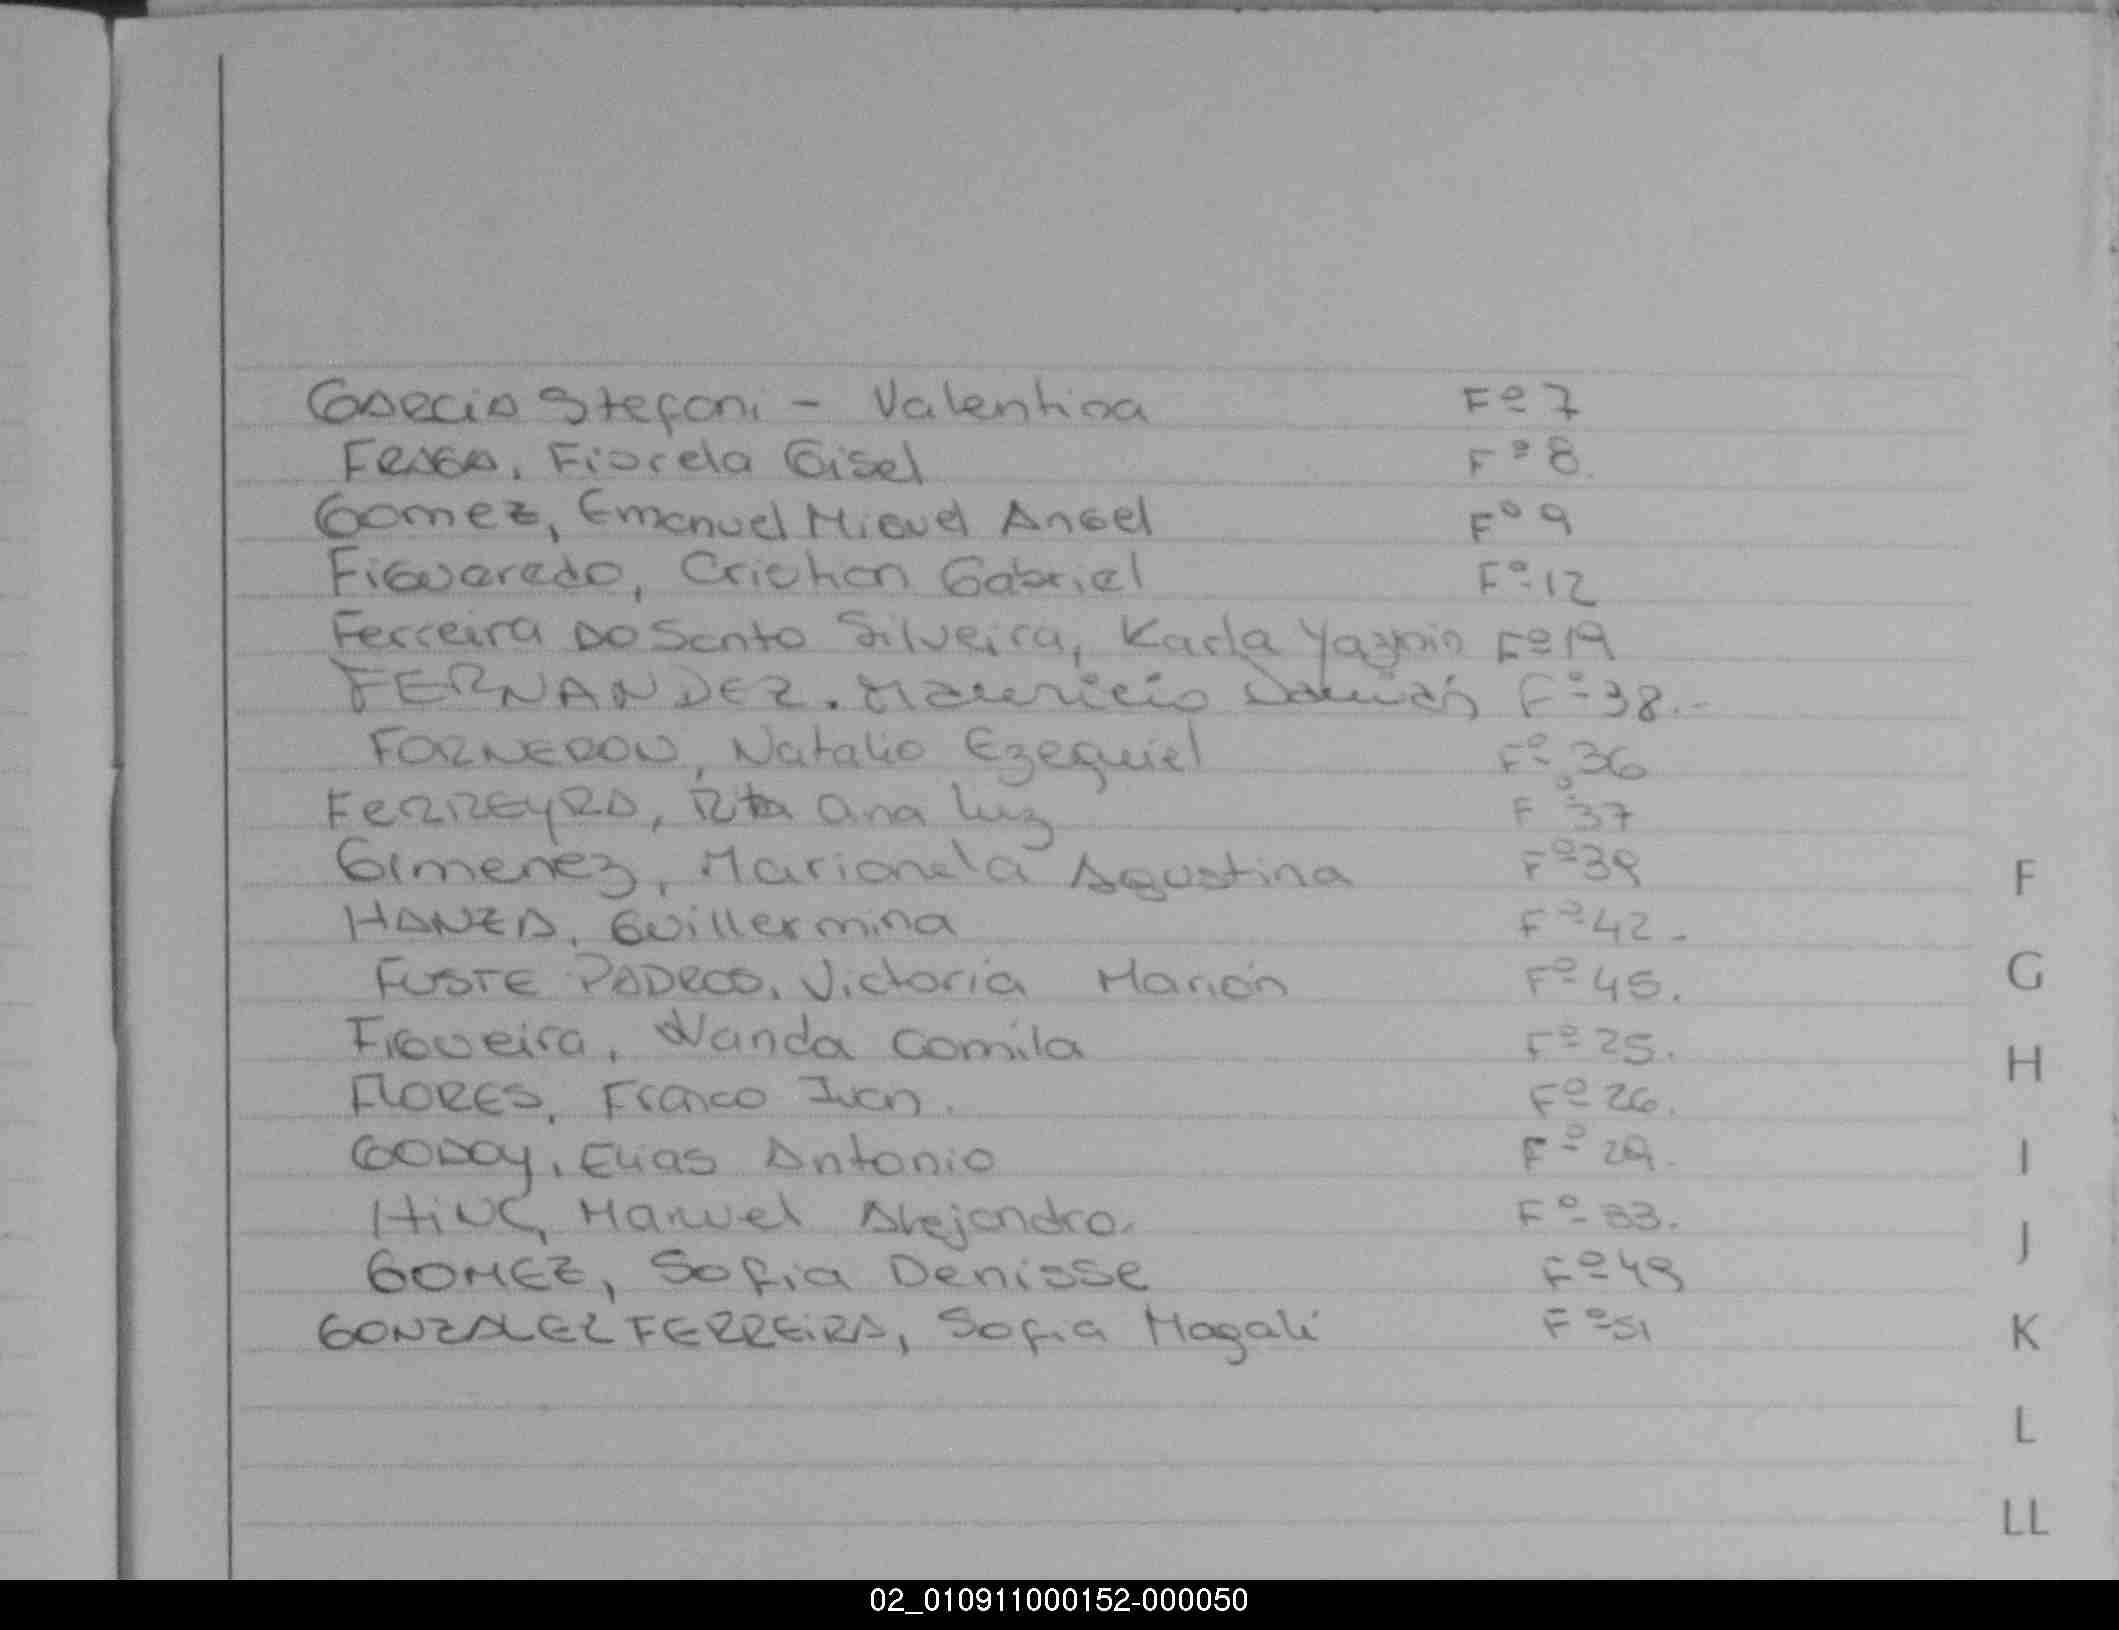 GARCIA Stefani - Valentina Fº 7
FRAGA, Fiorela Gisel Fº 8.
Gomez, Emanuel Miguel Angel Fº 9
Figueredo, Cristian Gabriel Fº 12
Ferreira Do Santo Silveira, Karla Yazmin Fº 19
FERNANDEZ. Mauricio Damián Fº 38.-
FORNERON, Natalio Ezequiel Fº 36
FERREYRA, Rita Ana Luz Fº 37
Gimenez, Marianela Agustina Fº 39
F
HANZA, Guillermina Fº 42.
FUSTE PADROS, Victoria Marión Fº 45.
G
Figueira, Wanda Camila Fº 25.
H
FLORES, Franco Ivan. Fº 26.
GODOY, Elias Antonio Fº 29.
I
HiNC, Manuel Alejandro. Fº 33.
J
GOMEZ, Sofia Denisse Fº 49
GONZALEZ FERREIRA, Sofia Magalí Fº 51
K
L
LL
02_010911000152-000050